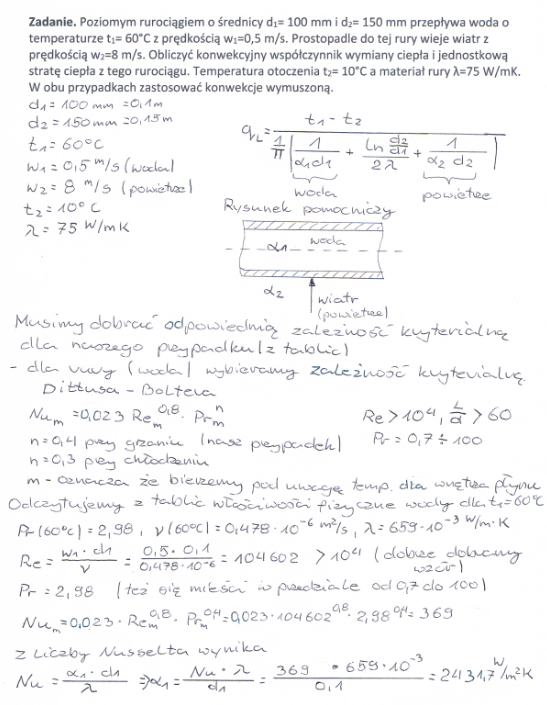 Zadanie. Poziomym rurociągiem o średnicy d₁= 100 mm i d₂= 150 mm przepływa woda o
temperaturze t₁= 60°C z prędkością w₁=0,5 m/s. Prostopadle do tej rury wieje wiatr z
prędkością w₂=8 m/s. Obliczyć konwekcyjny współczynnik wymiany ciepła i jednostkową
stratę ciepła z tego rurociągu. Temperatura otoczenia t₂= 10°C a materiał rury λ=75 W/mK.
W obu przypadkach zastosować konwekcje wymuszoną.
d₁ = 100 mm = 0,1m
d₂ = 150 mm = 0,15m
t₁ = 60°C
w₁ = 0,5 m/s (woda)
w₂ = 8 m/s (powietrze)
t₂ = 10°C
λ = 75 W/mK
q_L = (t₁ - t₂) / (1/π [1/(α₁d₁) + ln(d₂/d₁)/(2λ) + 1/(α₂d₂)])
woda powietrze
Rysunek pomocniczy
α₁ woda
α₂ wiatr
(powietrze)
Musimy dobrać odpowiednią zależność kryterialną
dla naszego przypadku (z tablic)
- dla rury (woda) wybieramy zależność kryterialną
Dittusa - Boltera
Nu_m = 0,023 Re_m^0,8 · Pr_m^n Re > 10⁴, L/d > 60
n = 0,4 przy grzaniu (nasz przypadek) Pr = 0,7 ÷ 100
n = 0,3 przy chłodzeniu
m - oznacza że bierzemy pod uwagę temp. dla wnętrza płynu
Odczytujemy z tablic właściwości fizyczne wody dla t₁=60°C
Pr(60°C) = 2,98, ν(60°C) = 0,478·10⁻⁶ m²/s, λ = 659·10⁻³ W/m·K
Re = w₁·d₁/ν = 0,5·0,1/0,478·10⁻⁶ = 104602 > 10⁴ (dobrze dobrany
wzór)
Pr = 2,98 (też się mieści w przedziale od 0,7 do 100)
Nu_m = 0,023·Re_m^0,8·Pr_m^0,4 = 0,023·104602^0,8·2,98^0,4 = 369
z Liczby Nusselta wynika
Nu = α₁·d₁/λ ⇒ α₁ = Nu·λ/d₁ = 369·659·10⁻³/0,1 = 2431,7 W/m²K